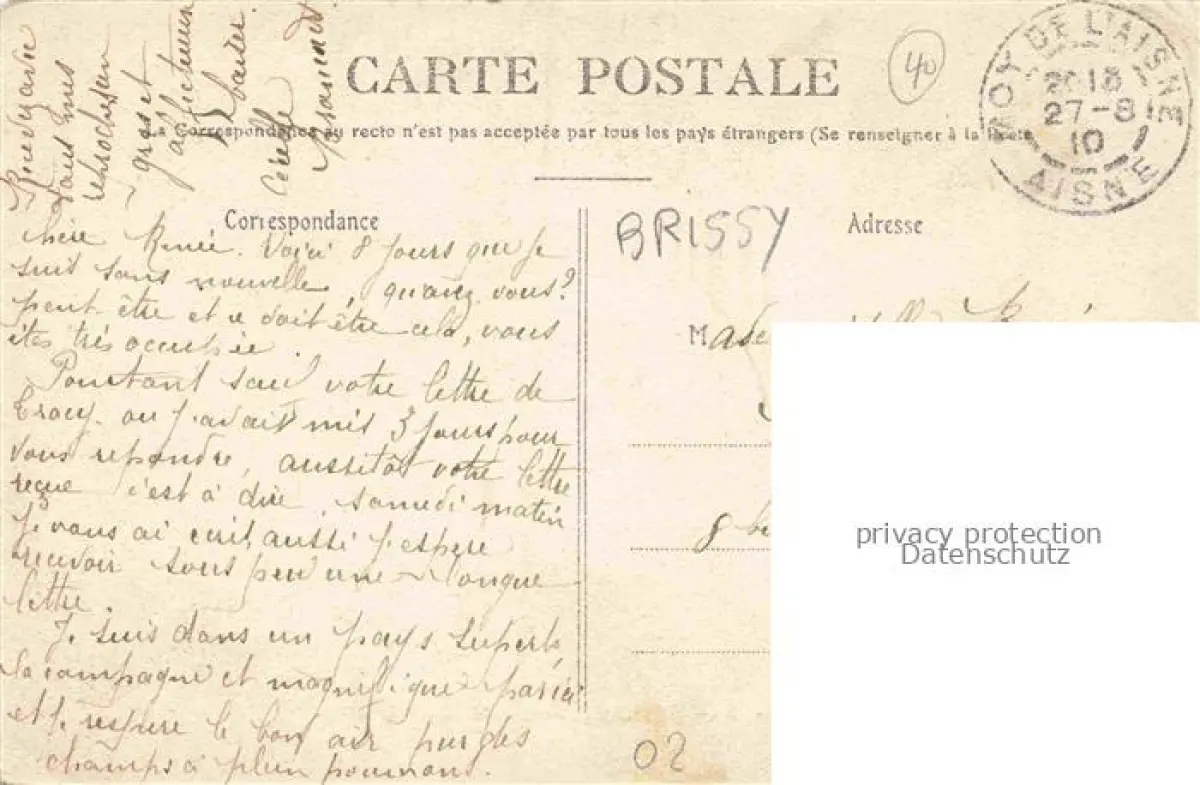 CARTE POSTALE
La Correspondance au recto n'est pas acceptée par tous les pays étrangers (Se renseigner à la Poste
40
MOY DE L'AISNE
27-8
10
AISNE
Correspondance
Adresse
BRISSY
chère Renée. Voici 8 jours que je
suis sans nouvelle, qu'avez vous?
peut être et ce doit être cela, vous
êtes très occupée.
Pourtant sauf votre lettre de
Tracy, ou j'avait mis 3 jours pour
vous repondre, aussitôt votre lettre
reçue c'est à dire, samedi matin
je vous ai écrit, aussi j'espere
recevoir sous peu une longue
lettre.
Je suis dans un pays superbe,
la campagne et magnifique par ici
et je respire le bon air pur des
champs à plein poumons.
dans mes
gros et
affectueux
baiser.
Made
privacy protection
Datenschutz
02